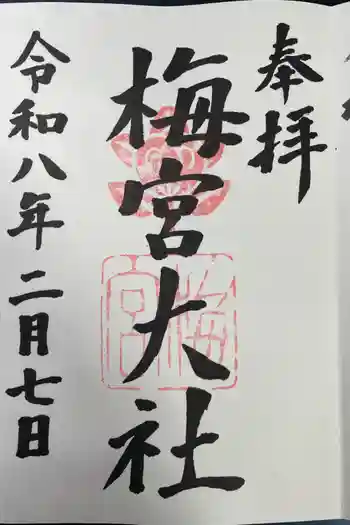 奉拝
梅宮大社
令和八年二月七日
梅宮